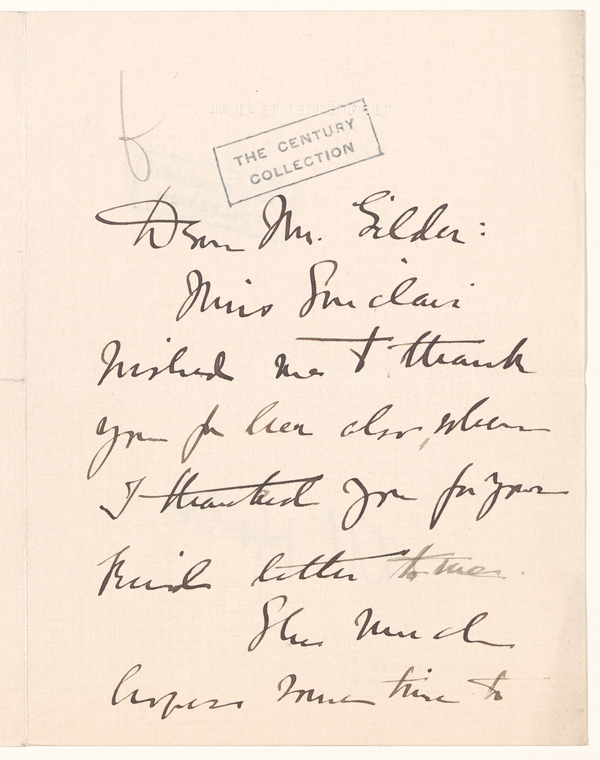 THE CENTURY
COLLECTION
Dear Mr. Gilder:
Miss Sinclair
wished me to thank
you for her also, when
I thanked you for your
kind letter to me.
She much
hopes some time to